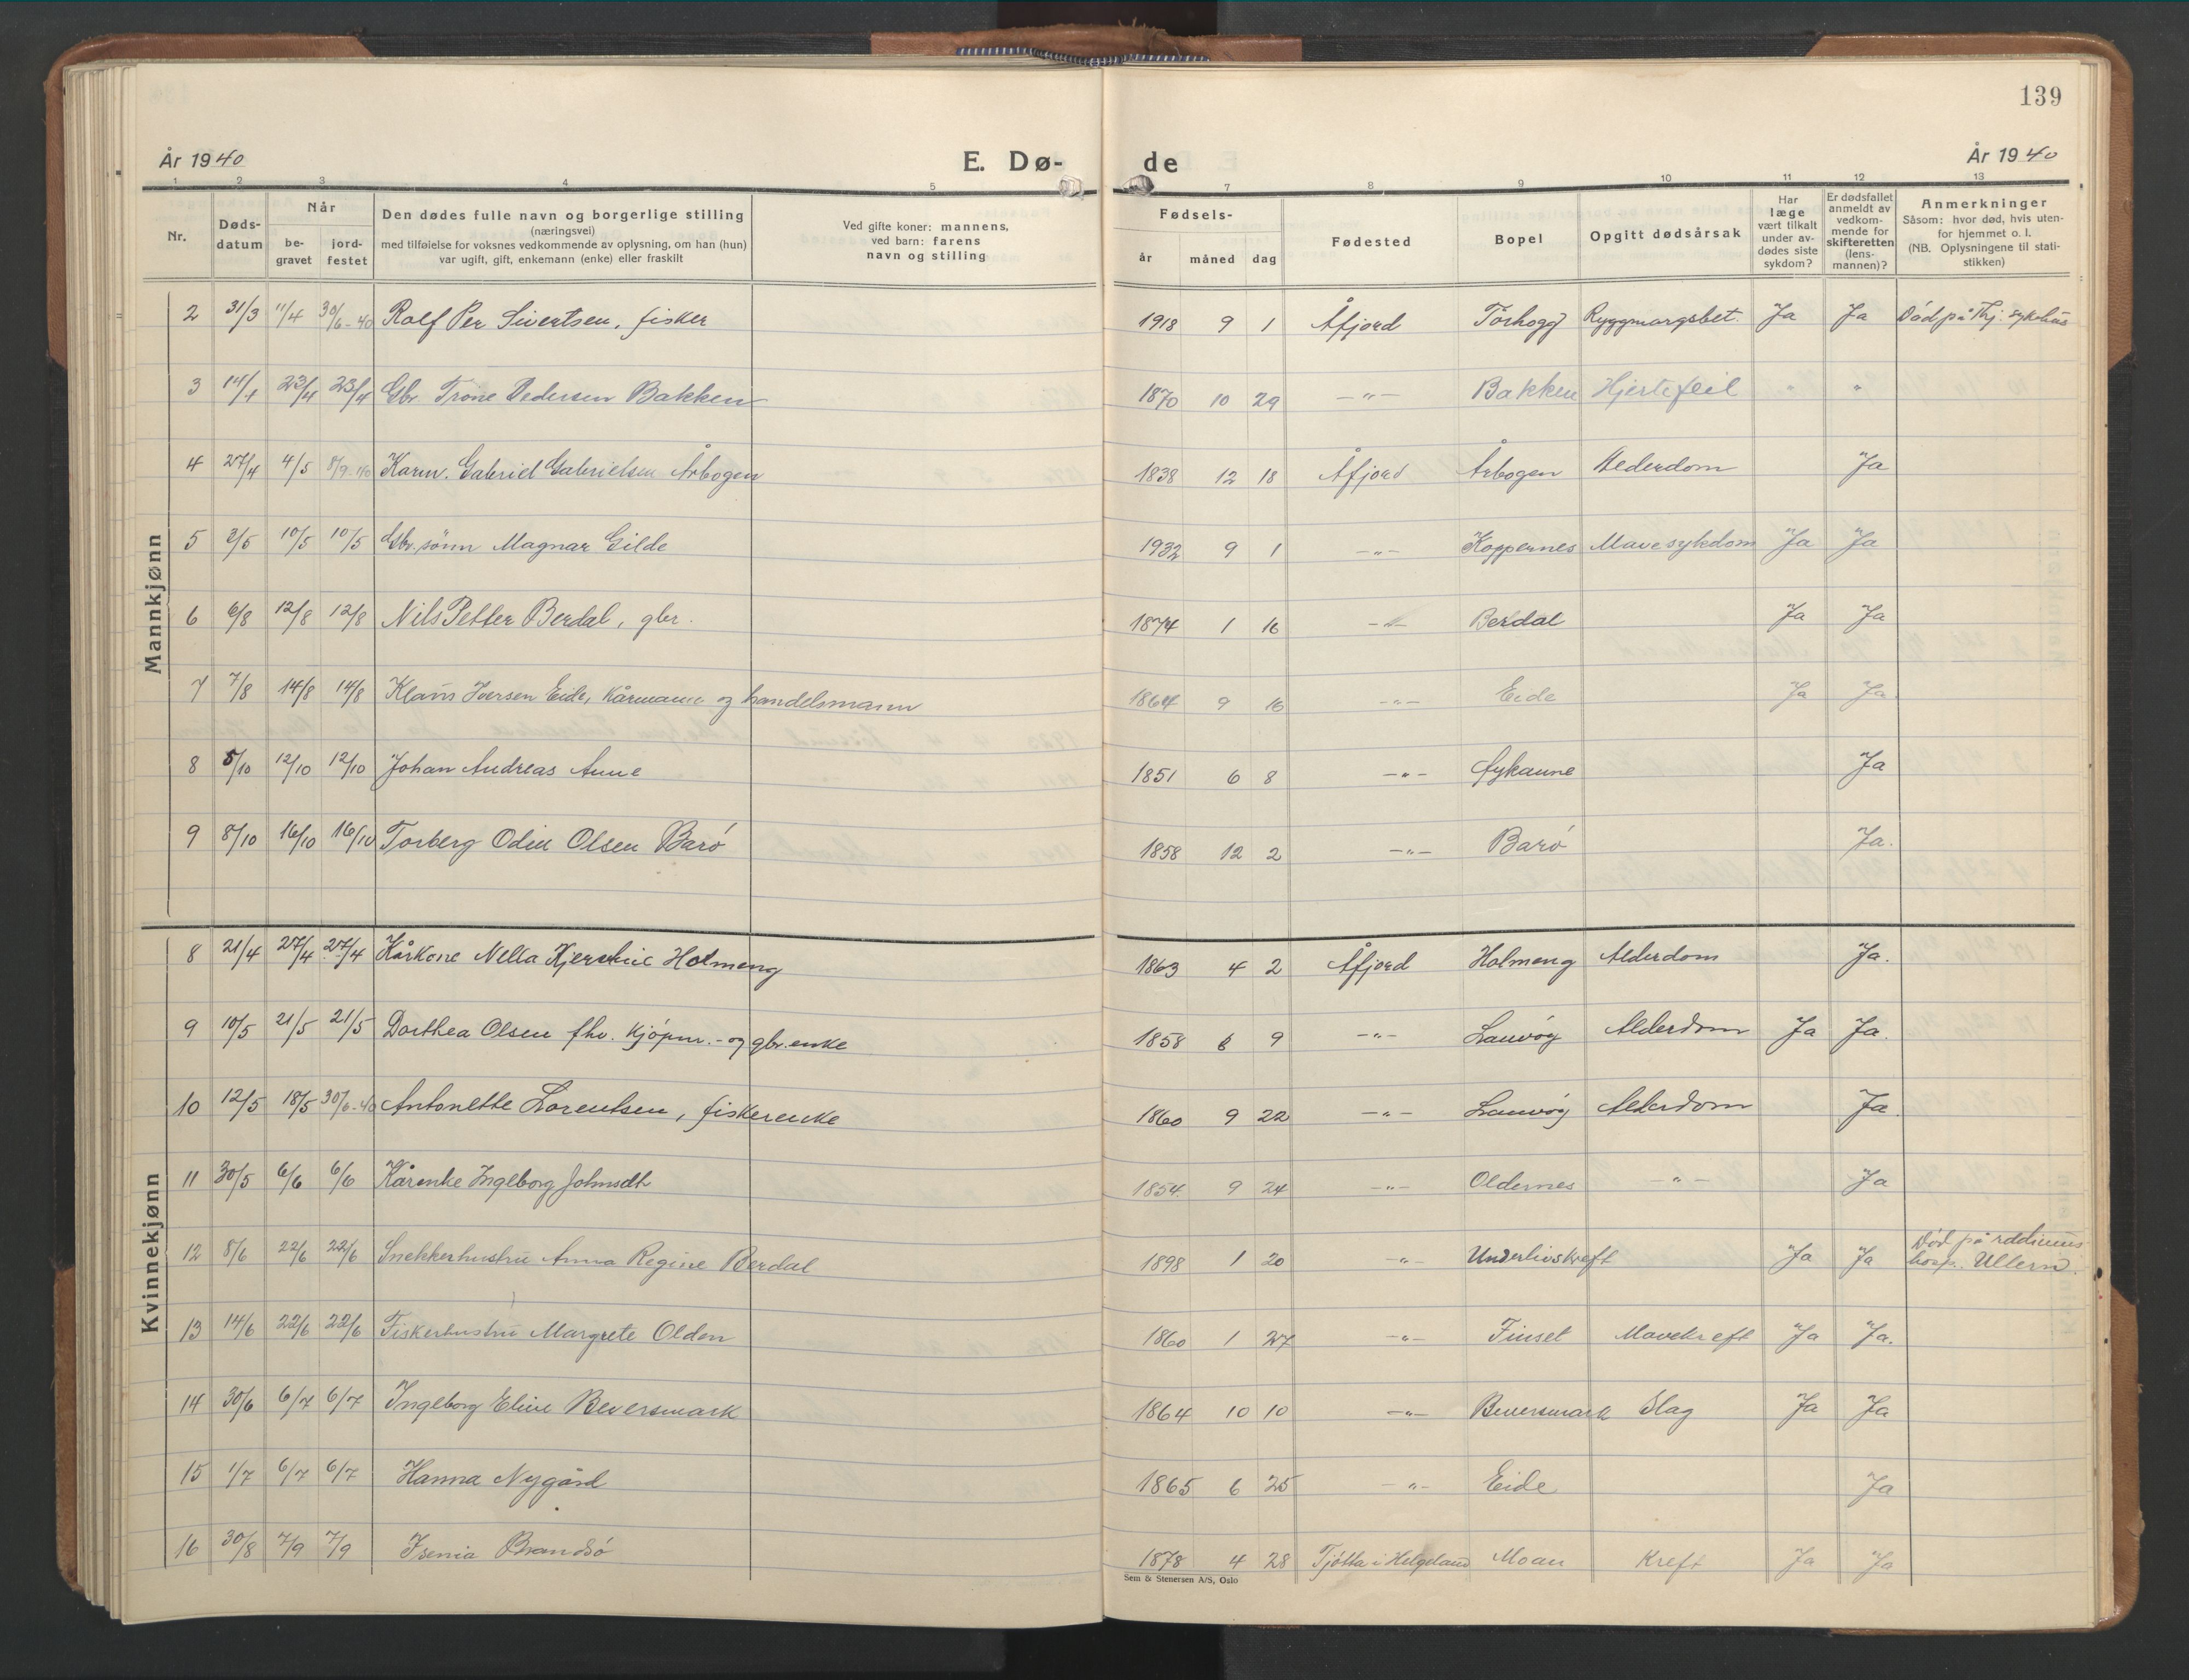 139
År 1940 E. Dø- de År 1940
1 2 3 4 5 7 8 9 10 11 12 13
Nr. Døds-datum Når be-gravet jord-festet Den dødes fulle navn og borgerlige stilling (næringsvei) med tilføielse for voksnes vedkommende av oplysning, om han (hun) var ugift, gift, enkemann (enke) eller fraskilt Ved gifte koner: mannens, ved barn: farens navn og stilling Fødsels- år måned dag Fødested Bopel Opgitt dødsårsak Har læge vært tilkalt under av-dødes siste sykdom? Er dødsfallet anmeldt av vedkom-mende for skifteretten (lens-mannen)? Anmerkninger Såsom: hvor død, hvis uten-for hjemmet o. l. (NB. Oplysningene til stati-stikken)
Mannkjønn
2 31/3 11/4 30/6-40 Rolf Per Sivertsen, fisker 1918 9 1 Åfjord Torhogg Ryggmargsbet. Ja Ja Död på Thj. sykehus
3 14/4 23/4 23/4 Gbr. Trone Pedersen Bakken 1870 10 29 -"- Bakken Hjertefeil " "
4 27/4 4/5 8/9-40 Kårm. Gabriel Gabrielsen Årbogen 1838 12 18 Åfjord Årbogen Alderdom Ja
5 2/5 10/5 10/5 Gbr. sönn Magnar Gilde 1932 9 1 -"- Koppernes Mavesykdom Ja Ja
6 6/8 12/8 12/8 Nils Petter Berdal, gbr. 1874 1 16 -"- Berdal Ja Ja
7 7/8 14/8 14/8 Klaus Iversen Eide, Kårmann og handelsmann 1864 9 16 -"- Eide Ja Ja.
8 5/10 12/10 12/10 Johan Andreas Aune 1851 6 8 -"- Aune Ja
9 8/10 16/10 16/10 Torberg Odin Olsen Barö 1858 12 2 -"- Barö Ja.
Kvinnekjønn
8 21/4 27/4 27/4 Kårkone Nella Kjerstine Holmeng 1863 4 2 Åfjord Holmeng Alderdom Ja.
9 10/5 21/5 21/5 Dorthea Olsen fhv. Kjöpm.- og gbr.enke 1858 6 9 -"- Lauvöy Alderdom Ja Ja.
10 12/5 18/5 30/6-40 Antonette Lorentsen, fiskerenke 1860 9 22 -"- Lauvöy Alderdom Ja
11 30/5 6/6 6/6 Kårenke Ingeborg Johnsdt 1854 9 24 -"- Oldernes -"- Ja
12 8/6 22/6 22/6 Snekkerhustru Anna Regine Berdal 1898 1 20 -"- Underlivskreft Ja Ja Död på radiums hosp. Ullern.
13 14/6 22/6 22/6 Fiskerhustru Margrete Olden 1860 1 27 -"- Finset Mavekreft Ja Ja.
14 30/6 6/7 6/7 Ingeborg Eline Beversmark 1864 10 10 -"- Beversmark Slag Ja Ja
15 1/7 6/7 6/7 Hanna Nygård 1865 6 25 -"- Eide Ja
16 30/8 7/9 7/9 Isenia Brandsö 1878 4 28 Tjötta i Helgeland Moan Kreft Ja Ja
Sem & Stenersen A/S, Oslo